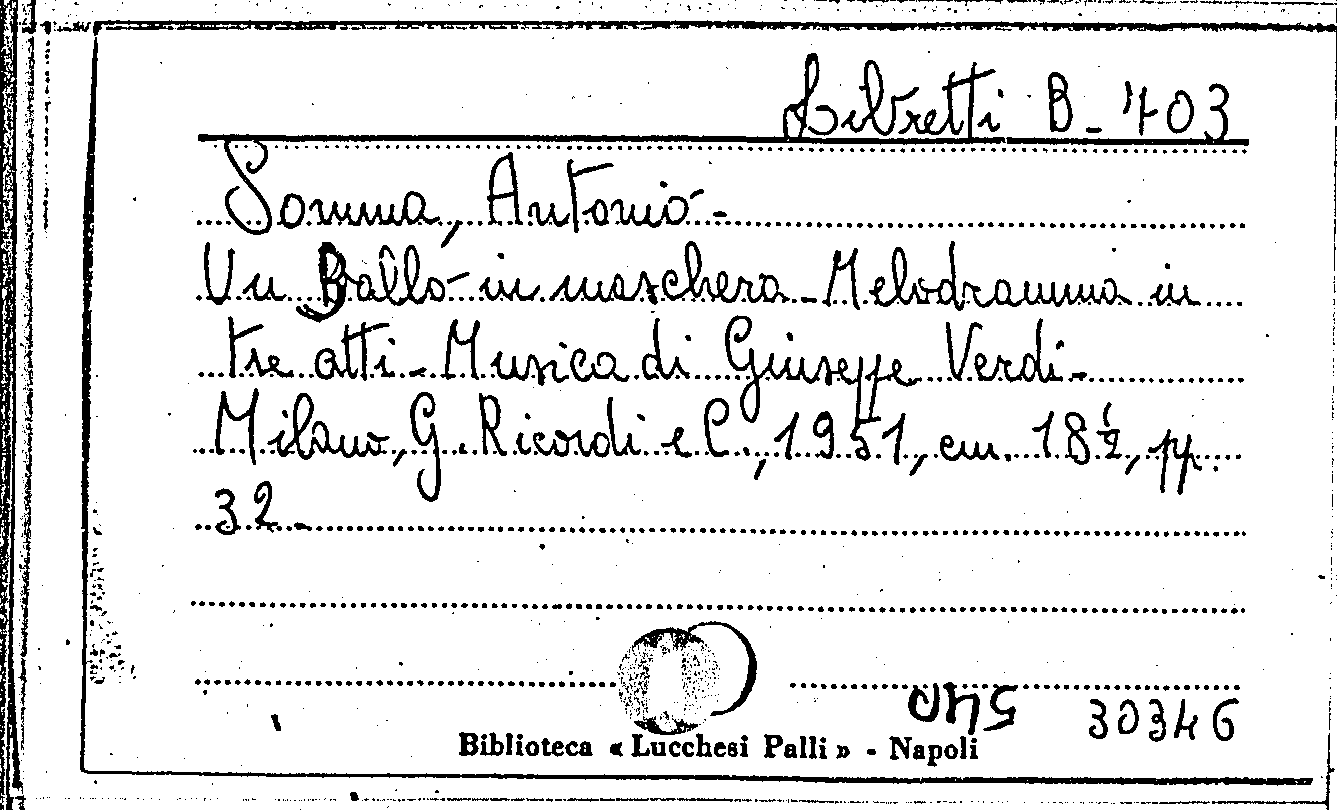 Libretti B-403
Somma, Antonio-
Un Ballo in maschera - Melodramma in
tre atti - Musica di Giuseppe Verdi-
Milano, G. Ricordi e C., 1951, cm. 18½, pp.
32-
30346
Biblioteca « Lucchesi Palli » - Napoli